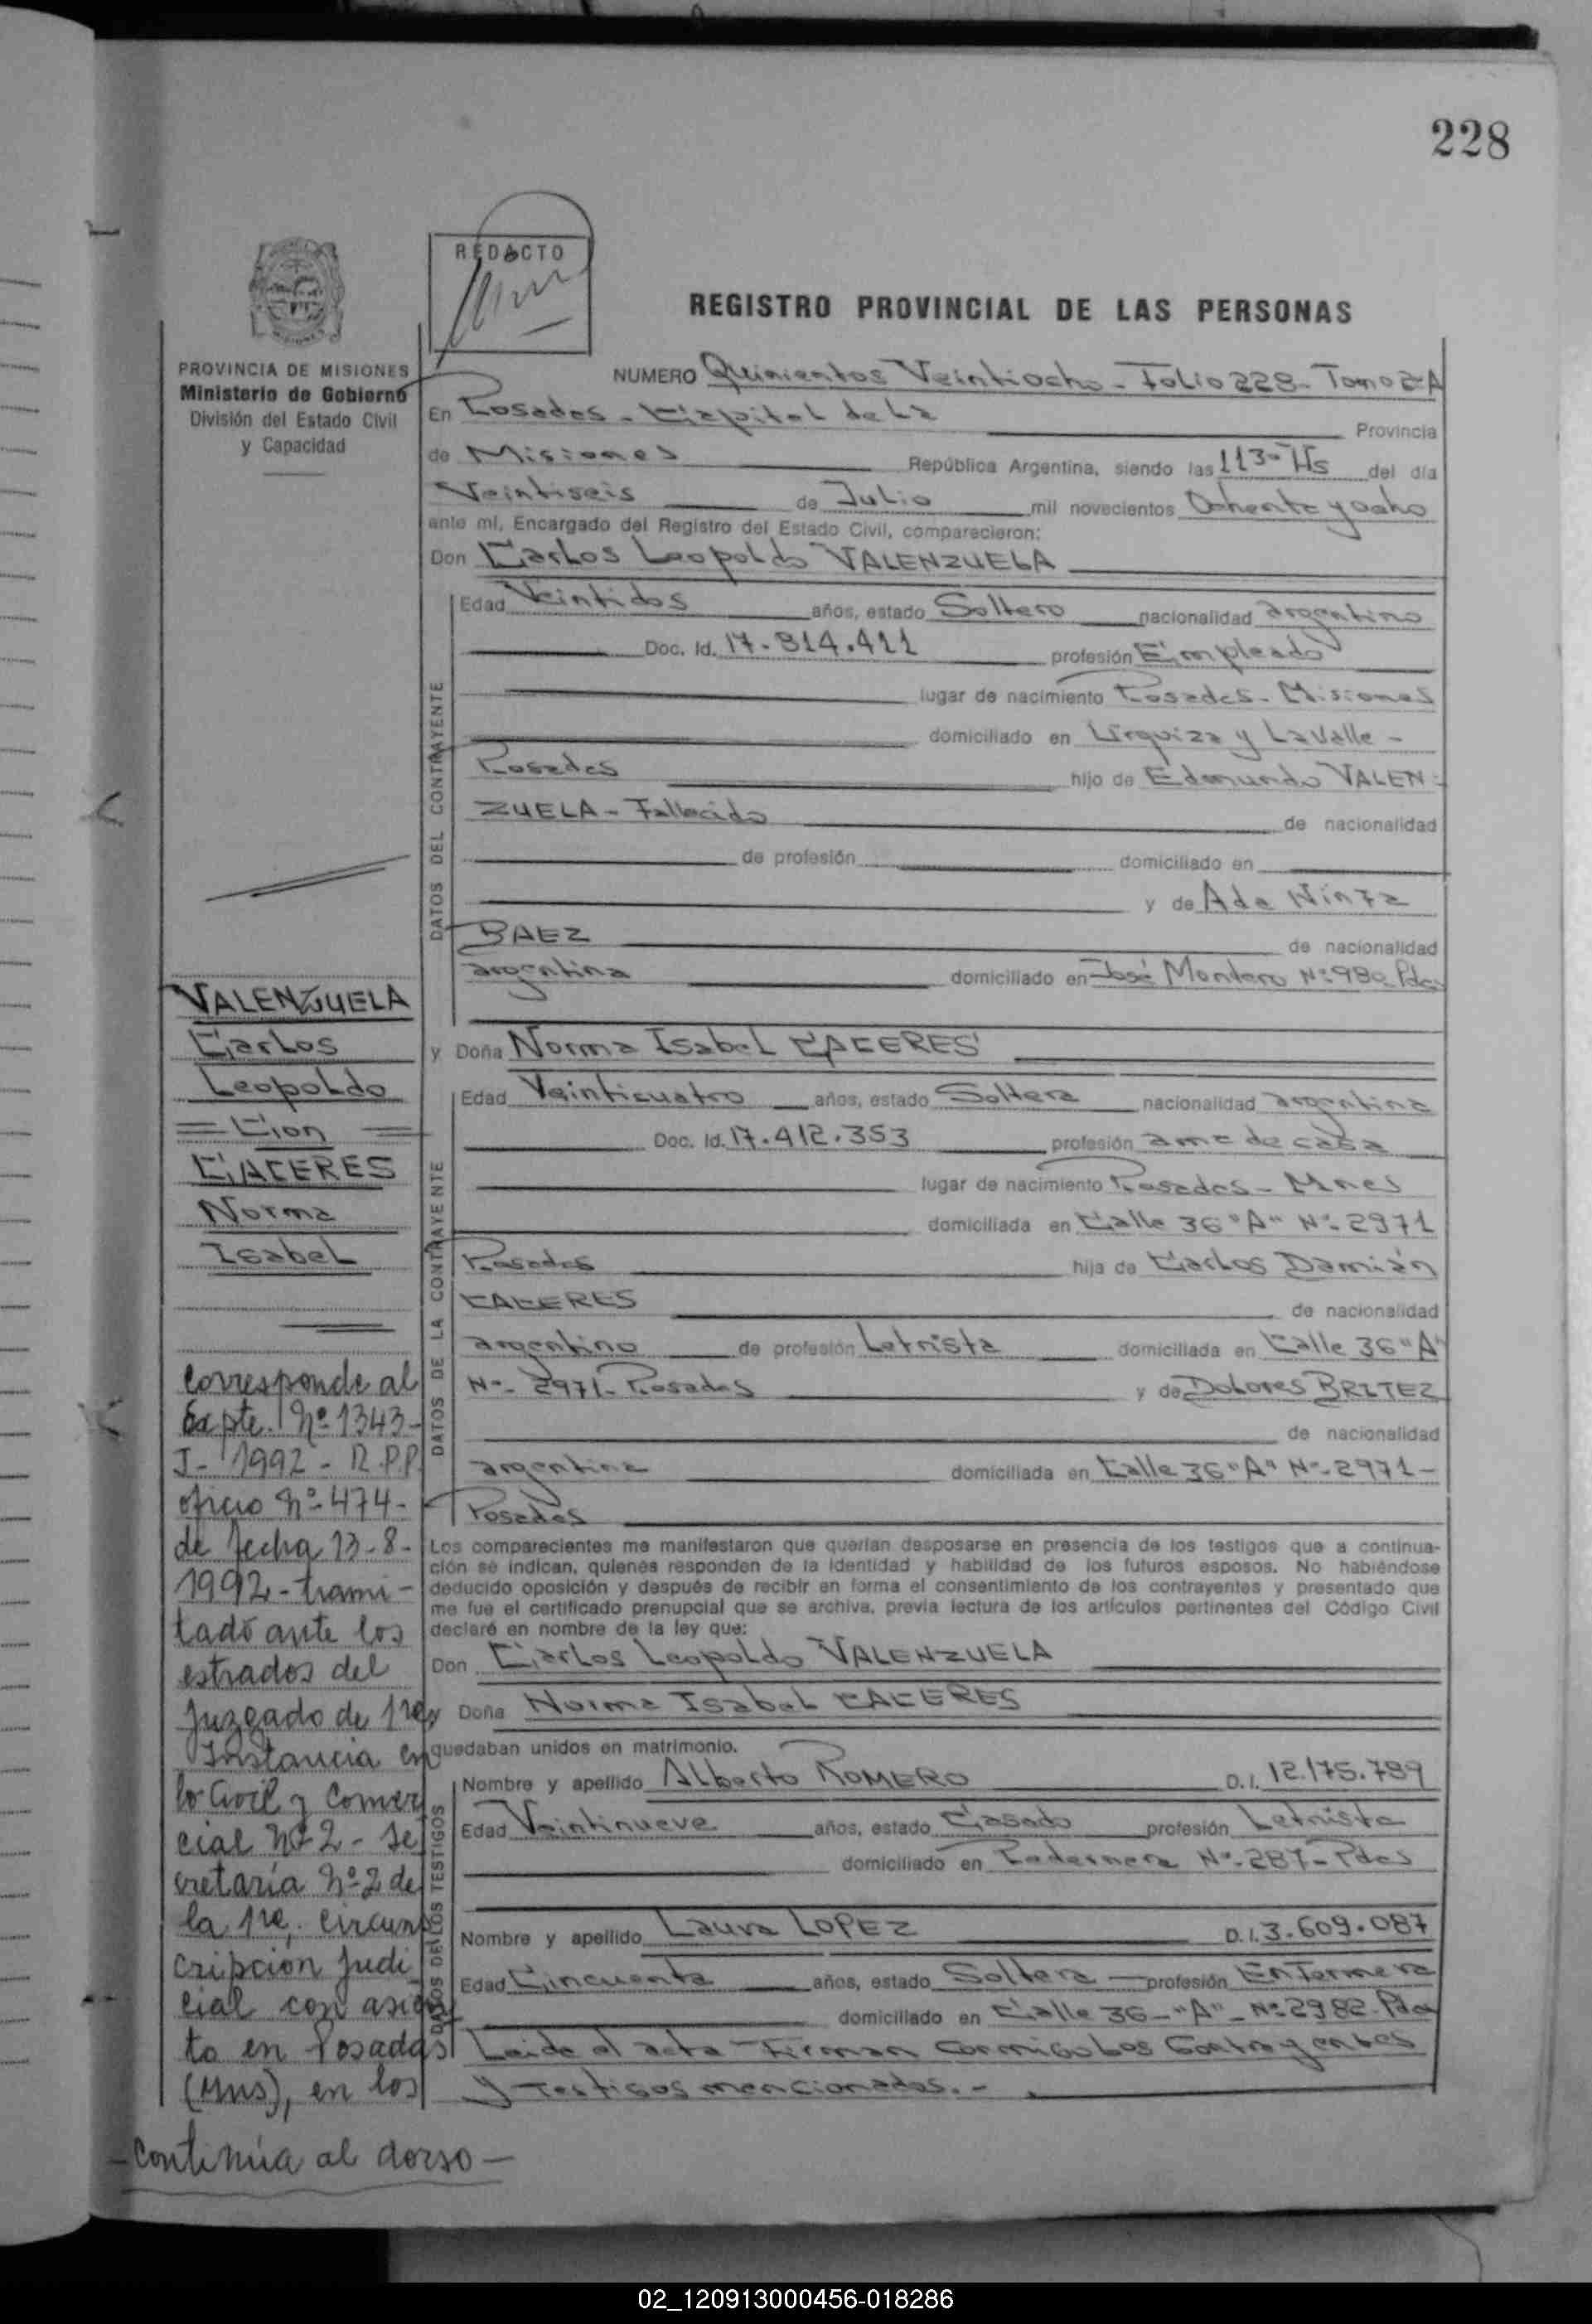 228
REDACTO
REGISTRO PROVINCIAL DE LAS PERSONAS
PROVINCIA DE MISIONES
Ministerio de Gobierno
División del Estado Civil
y Capacidad
NUMERO Quinientos Veintiocho - Folio 228 - Tomo 2-A
En Posadas - Capital de La Provincia
de Misiones República Argentina, siendo las 1130 Hs del día
Veintiseis de Julio mil novecientos Ochenta y ocho
ante mí, Encargado del Registro del Estado Civil, comparecieron:
Don Carlos Leopoldo VALENZUELA
DATOS DEL CONTRAYENTE
Edad Veintidos años, estado Soltero nacionalidad argentino
Doc. Id. 17.814.411 profesión Empleado
lugar de nacimiento Posadas - Misiones
domiciliado en Urquiza y Lavalle -
Posadas hijo de Edmundo VALEN-
ZUELA - Fallecido de nacionalidad
de profesión domiciliado en
y de Ada
BAEZ de nacionalidad
argentina domiciliado en José Montero Nº 980 Pdas
y Doña Norma Isabel CACERES
DATOS DE LA CONTRAYENTE
Edad Veinticuatro años, estado Soltera nacionalidad argentina
Doc. Id. 17.412.353 profesión ama de casa
lugar de nacimiento Posadas - Mnes
domiciliada en Calle 36 "A" Nº 2971
Posadas hija de Carlos Damián
CACERES de nacionalidad
argentino de profesión Letrista domiciliada en Calle 36 "A"
Nº 2971 - Posadas y de Dolores BRITEZ
de nacionalidad
argentina domiciliada en Calle 36 "A" Nº 2971 -
Posadas
Los comparecientes me manifestaron que querían desposarse en presencia de los testigos que a continua-
ción se indican, quienes responden de la identidad y habilidad de los futuros esposos. No habiéndose
deducido oposición y después de recibir en forma el consentimiento de los contrayentes y presentado que
me fue el certificado prenupcial que se archiva, previa lectura de los artículos pertinentes del Código Civil
declaré en nombre de la ley que:
Don Carlos Leopoldo VALENZUELA
y Doña Norma Isabel CACERES
quedaban unidos en matrimonio.
DATOS DE LOS TESTIGOS
Nombre y apellido Alberto ROMERO D.I. 12.175.789
Edad Veintinueve años, estado Casado profesión Letrista
domiciliado en Pedernera Nº 287 - Pdas
Nombre y apellido Laura LOPEZ D.I. 3.609.087
Edad Cincuenta años, estado Soltera profesión Enfermera
domiciliado en Calle 36 - "A" - Nº 2982 - Pdas
Leida el acta Firman Conmigo Los Contrayentes
y Testigos mencionados. -
VALENZUELA
Carlos
Leopoldo
= Con =
CACERES
Norma
Isabel
Corresponde al
Expte. Nº 1343-
J - 1992 - R.P.P.
oficio Nº 474-
de fecha 13-8-
1992 - trami-
tado ante los
estrados del
Juzgado de 1ra
Instancia en
lo Civil y Comer
cial Nº 2 - Se
cretaría Nº 2 de
la 1ra. circuns
cripción Judi
cial con asien
to en Posadas
(Mns), en los
- Continúa al dorso -
02_120913000456-018286